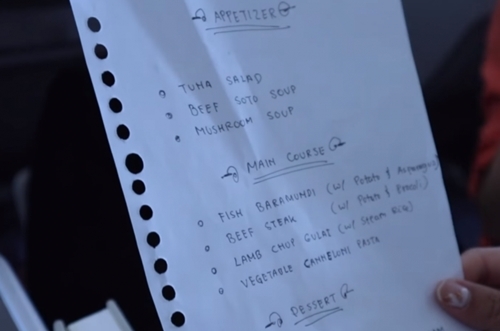 APPETIZER
TUNA SALAD
BEEF SOTO SOUP
MUSHROOM SOUP
MAIN COURSE
FISH BARAMUNDI (w/ Potato & Asparagus)
BEEF STEAK (w/ Potato &
LAMB CHOP GULAI (w/ Steam Rice)
VEGETABLE CANNELONI PASTA
DESSERT